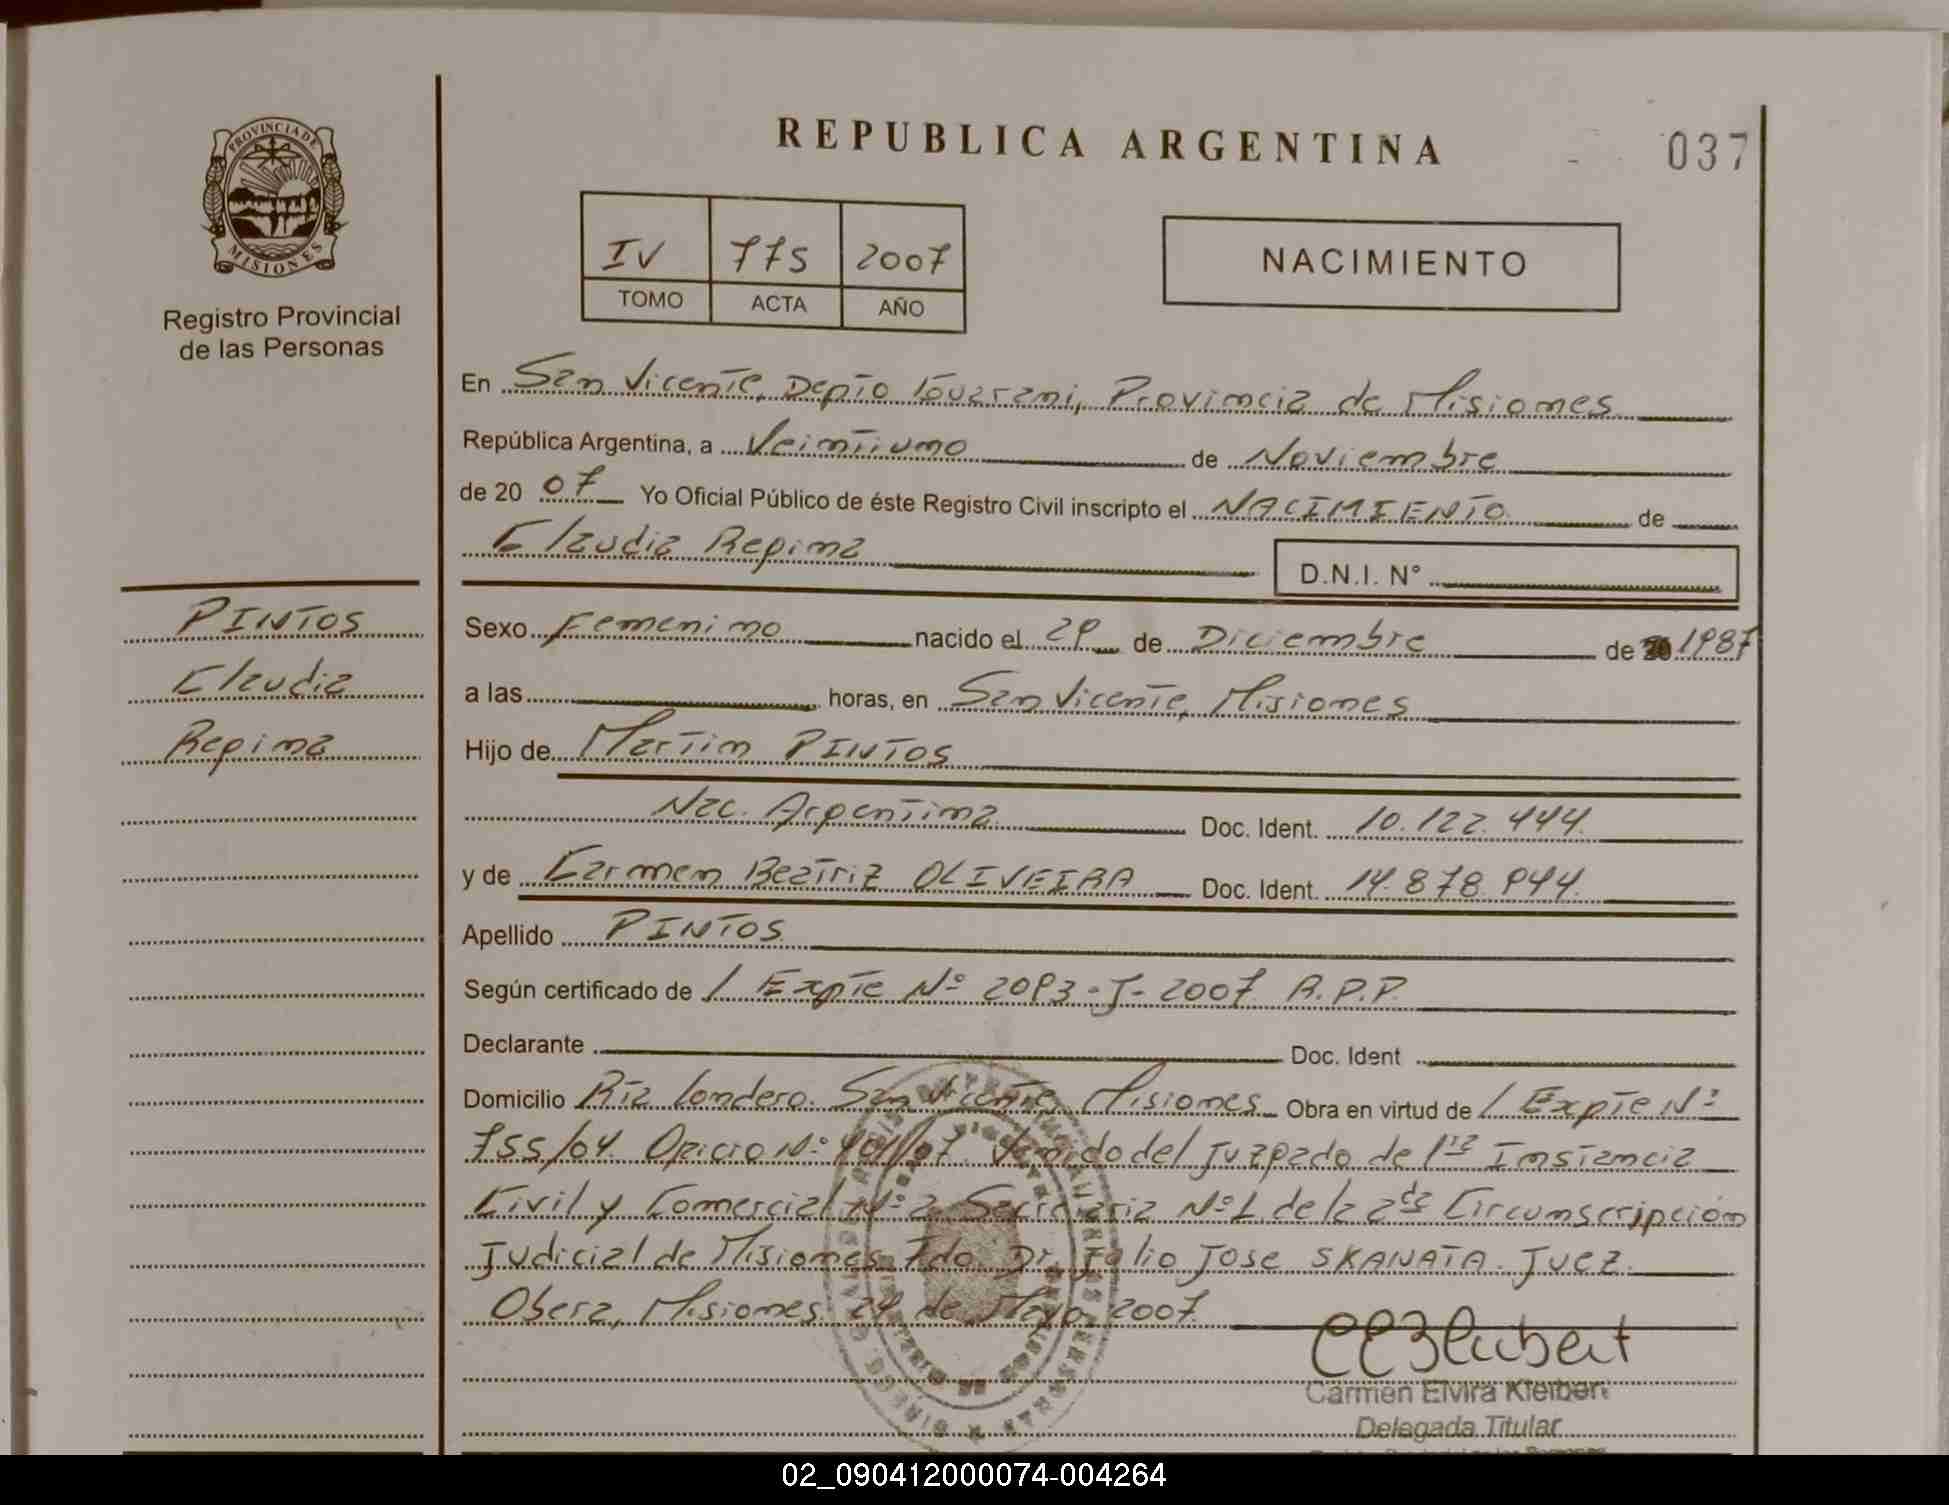 REPUBLICA ARGENTINA
037
PROVINCIA DE
MISIONES
Registro Provincial
de las Personas
IV 775 2007
TOMO ACTA AÑO
NACIMIENTO
En San Vicente, Depto Guarani, Provincia de Misiones
República Argentina, a Veintiuno de Noviembre
de 20 07 Yo Oficial Público de éste Registro Civil inscripto el NACIMIENTO de
Claudia Regina
D.N.I. N°
PINTOS
Claudia
Regina
Sexo Femenino nacido el 29 de Diciembre de 1987
a las horas, en San Vicente, Misiones
Hijo de Martin PINTOS
Nac. Argentina Doc. Ident. 10.122.444
y de Carmen Beatriz OLIVEIRA Doc. Ident. 14.878.944
Apellido PINTOS
Según certificado de / Expte Nº 2093-J-2007 R.P.P.
Declarante Doc. Ident
Domicilio Rta Londero. San Vicente, Misiones Obra en virtud de / Expte Nº
755/04 Oficio Nº 401/07 Venido del Juzgado de 1ra Instancia
Civil y Comercial Nº 2 Secretaria Nº 1 de la 2da Circunscripción
Judicial de Misiones Fdo Dr. Julio Jose SKANATA. Juez.
Obera, Misiones. 24 de Mayo 2007
Carmen Elvira Kleibert
Delegada Titular
02_090412000074-004264